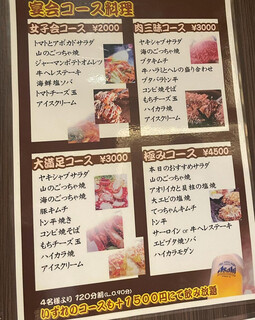 宴会コース料理
女子会コース ¥2000
トマトとアボカドサラダ
山のごっちゃ焼
ジャーマンポテトオムレツ
牛ヘレステーキ
海鮮塩ソバ
トマトチーズ玉
アイスクリーム
肉三昧コース ¥3000
ヤキシャブサラダ
ブタキムチ
牛ハラミとヘレの盛り合わせ
ブタバラトン平
コンビ焼そば
もちチーズ玉
ハイカラ焼
アイスクリーム
大満足コース ¥3000
ヤキシャブサラダ
山のごっちゃ焼
海のごっちゃ焼
豚キムチ
トン平焼き
コンビ焼そば
もちチーズ玉
ハイカラ焼
アイスクリーム
極みコース ¥4500
本日のおすすめサラダ
山のごっちゃ焼
アオリイカと貝柱の塩焼
大エビの塩焼
てっちゃんキムチ
トン平
サーロイン or 牛ヘレステーキ
エビブタ焼ソバ
ハイカラモダン
Asahi
4名様より 120分制(L.O.90分)
いずれのコースも+1500円にて飲み放題